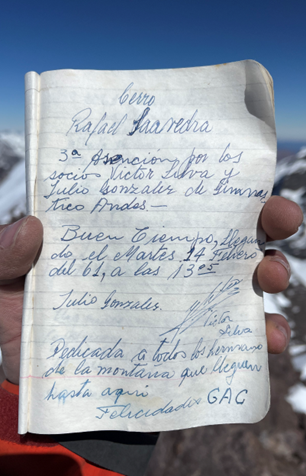 Cerro
Rafael Saavedra
3ª Ascención por los
socios Victor Silva y
Julio Gonzalez de Gimnas
tico Andes —
Buen Tiempo, llegan
do, el Martes 14 Febrero
del 61, a las 13 05
Julio Gonzales.
Victor
Silva
Dedicada a todos los hermanos
de la montaña que lleguen
hasta aquí
Felicidades GAC